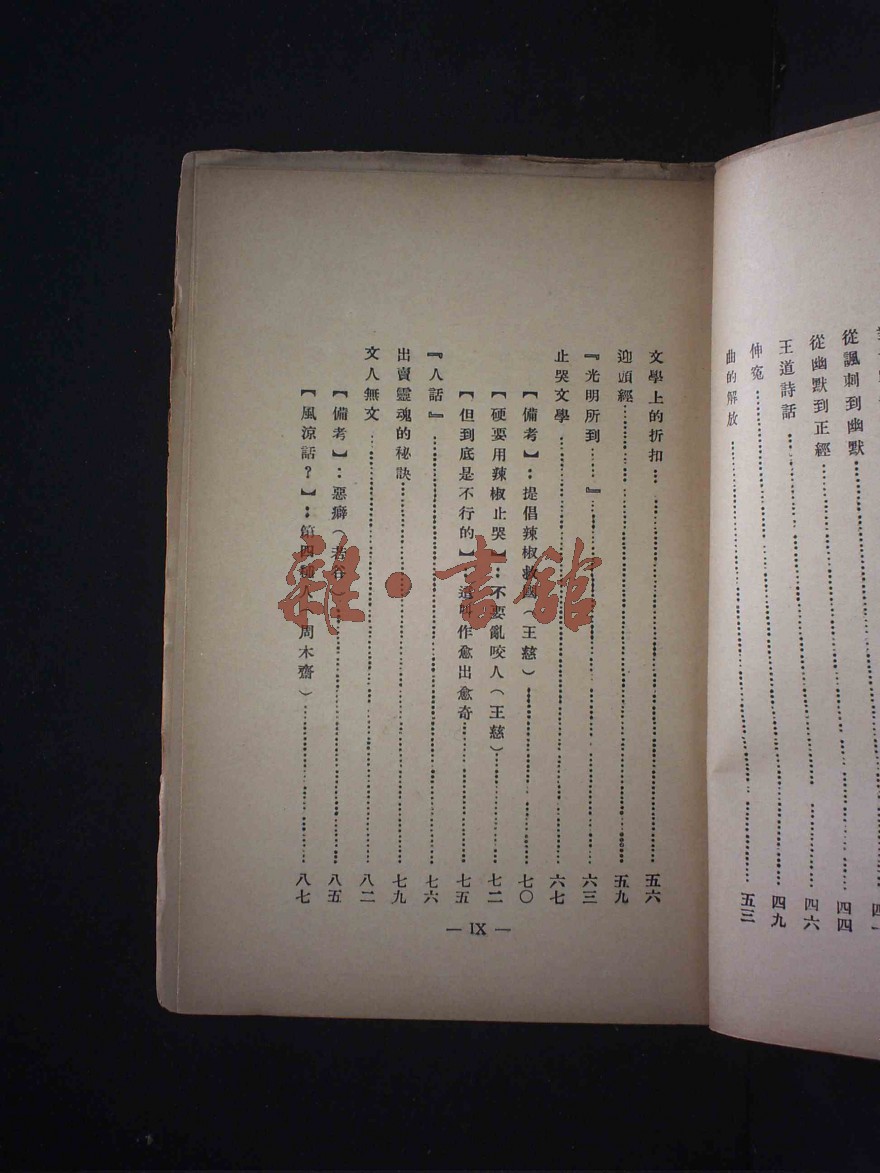 從諷刺到幽默……四四
從幽默到正經……四六
王道詩話……四九
伸冤……
曲的解放……五三
文學上的折扣……五六
迎頭經……五九
『光明所到……』……六三
止哭文學……六七
【備考】：提倡辣椒救國（王慈）……七〇
【硬要用辣椒止哭】：不要亂咬人（王慈）……七二
【但到底是不行的】：這叫作愈出愈奇……七五
『人話』……七六
出賣靈魂的秘訣……七九
文人無文……八二
【備考】：惡癖（若谷）……八五
【風涼話？】：第四種人（周木齋）……八七
— IX —
雜·書館